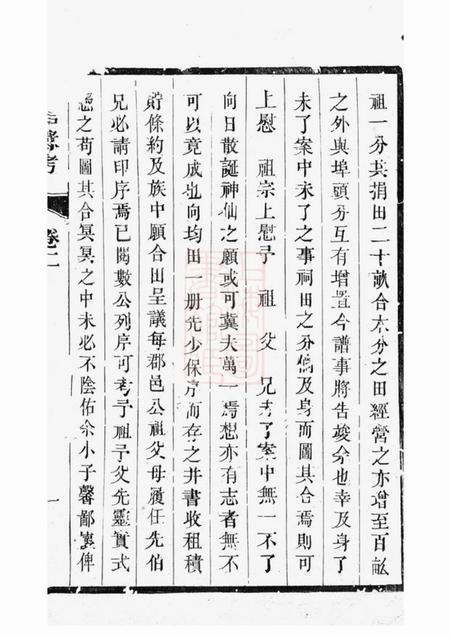 祖一分共捐田二十畝合本分之田經營之亦增至百畝
之外與埠頭分互有增置今譜事將告竣分也幸及身了
未了案中未了之事祠田之分倘及身而圖其合焉則可
上慰　祖宗上慰予　祖　父　兄考了案中無一不了
向日散誕神仙之願或可冀夫萬一焉想亦有志者無不
可以竟成也向均田一册先少保序而存之并書收租積
貯條約及族中願合田呈議每郡邑公祖父母履任先伯
兄必請印序焉已閱數公列序可考予祖予父先靈實式
憑之苟圖其合冥冥之中未必不陰佑余小子馨鄙寠俾
考
卷二
一